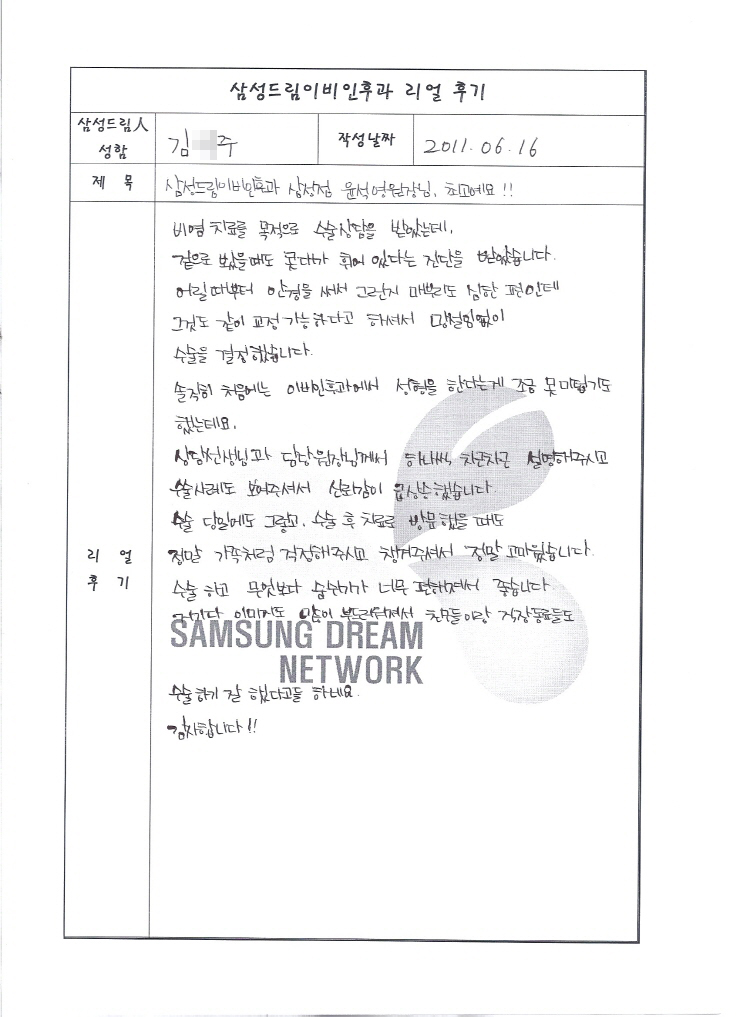 삼성드림이비인후과 리얼 후기
삼성드림人
성함
김 주
작성날짜
2011. 06. 16
제 목
삼성드림이비인후과 삼성점 윤석영원장님, 최고예요!!
비염 치료를 목적으로 수술상담을 받았는데,
겉으로 보았을때도 콧대가 휘어 있다는 진단을 받았습니다.
어릴때부터 안경을 써서 그런지 매부리도 심한 편인데
그것도 같이 교정 가능하다고 하셔서 망설임없이
수술을 결정했습니다.
솔직히 처음에는 이비인후과에서 성형을 한다는게 조금 못미덥기도
했는데요,
상담선생님과 담당원장님께서 하나씩 차근차근 설명해주시고
수술사례도 보여주셔서 신뢰감이 급상승했습니다.
수술 당일에도 그렇고, 수술 후 치료로 방문했을 때도
정말 가족처럼 걱정해주시고 챙겨주셔서 정말 고마웠습니다.
리 얼
후 기
수술하고 무엇보다 숨쉬기가 너무 편해져서 좋습니다.
이미지도 많이 부드러워져서 친구들이랑 직장동료들도
SAMSUNG DREAM
NETWORK
수술하기 잘 했다고들 하네요.
감사합니다!!